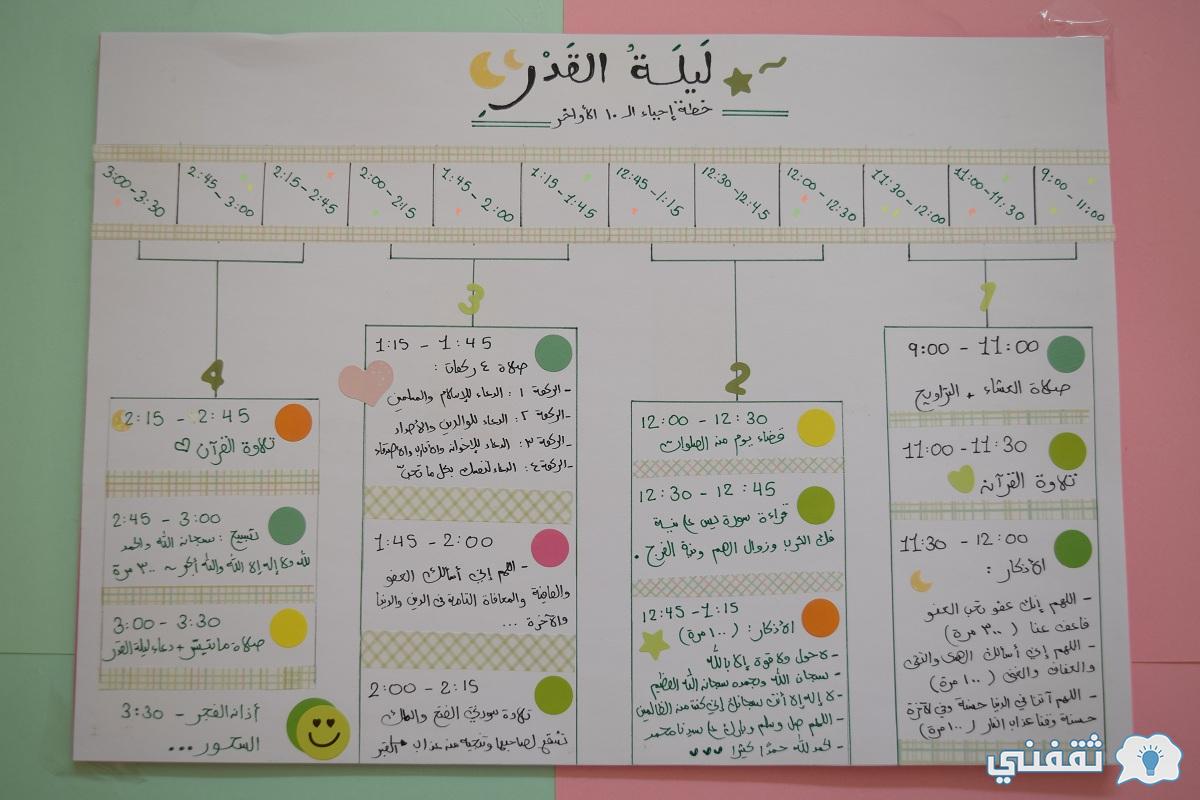 لَيلَةُ القَدْر
خطة إحياء الـ ١٠ الأواخر
9:00 - 11:00
11:00 - 11:30
11:30 - 12:00
12:00 - 12:30
12:30 - 12:45
12:45 - 1:15
1:15 - 1:45
1:45 - 2:00
2:00 - 2:15
2:15 - 2:45
2:45 - 3:00
3:00 - 3:30
1
9:00 - 11:00
صلاة العشاء + التراويح
11:00 - 11:30
تلاوة القرآن
11:30 - 12:00
الأذكار :
- اللهم إنك عفو تحب العفو
فاعف عنا ( ٣٠٠ مرة )
- اللهم إني أسألك الهدى والتقى
والعفاف والغنى ( ١٠٠ مرة )
- اللهم آتنا في الدنيا حسنة وفي الآخرة
حسنة وقنا عذاب النار ( ١٠٠ مرة )
2
12:00 - 12:30
قضاء يوم من الصلوات
12:30 - 12:45
قراءة سورة يس على نية
فك الكرب وزوال الهم ونية الفرج .
12:45 - 1:15
الأذكار : ( ١٠٠ مرة )
- لا حول ولا قوة إلا بالله
- سبحان الله وبحمده سبحان الله العظيم
- لا إله إلا أنت سبحانك إني كنت من الظالمين
- اللهم صل وسلم وبارك على سيدنا محمد
- الحمدلله حمدًا كثيرًا
3
1:15 - 1:45
صلاة ٤ ركعات :
- الركعة ١ : الدعاء للإسلام والمسلمين
- الركعة ٢ : الدعاء للوالدين والأجداد
- الركعة ٣ : الدعاء للإخوان والأقارب والأصدقاء
- الركعة ٤ : الدعاء لنفسك بكل ما تحبّ
1:45 - 2:00
- اللهم إني أسألك العفو
والعافية والمعافاة التامة في الدين والدنيا
والآخرة ...
2:00 - 2:15
تلاوة سورتي الفتح والملك
تشفع لصاحبها وتنجيه من عذاب القبر
4
2:15 - 2:45
تلاوة القرآن
2:45 - 3:00
تسبيح : سبحان الله والحمد
لله ولا إله إلا الله والله أكبر ~ ٣٠٠ مرة
3:00 - 3:30
صلاة ما تيسّر + دعاء ليلة القدر
3:30 - أذان الفجر
السحور ...
ثقفني